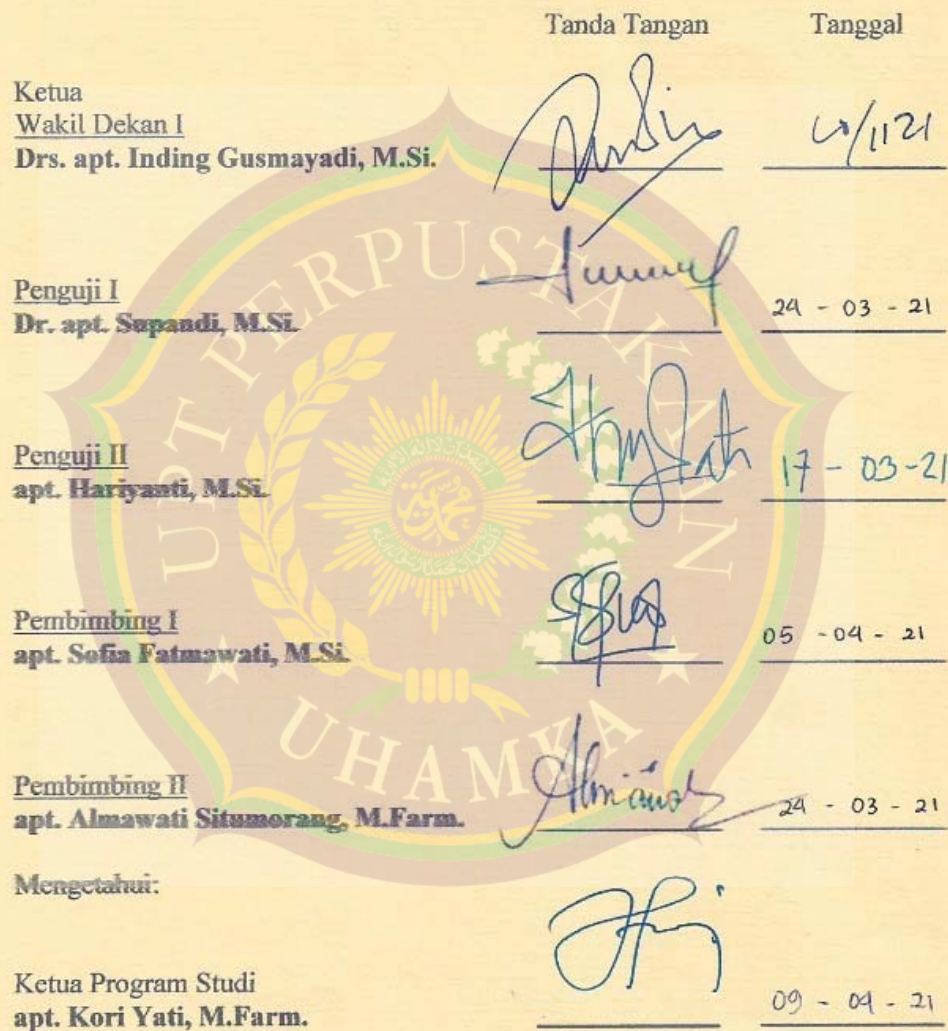 Tanda Tangan Tanggal
Ketua
Wakil Dekan I
Drs. apt. Inding Gusmayadi, M.Si.
Penguji I
Dr. apt. Supandi, M.Si.
24 - 03 - 21
Penguji II
apt. Hariyanti, M.Si.
17 - 03 - 21
Pembimbing I
apt. Sofia Fatmawati, M.Si.
05 - 04 - 21
Pembimbing II
apt. Almawati Situmorang, M.Farm.
24 - 03 - 21
Mengetahui:
Ketua Program Studi
apt. Kori Yati, M.Farm.
09 - 04 - 21
UPT PERPUSTAKAAN
UHAMKA